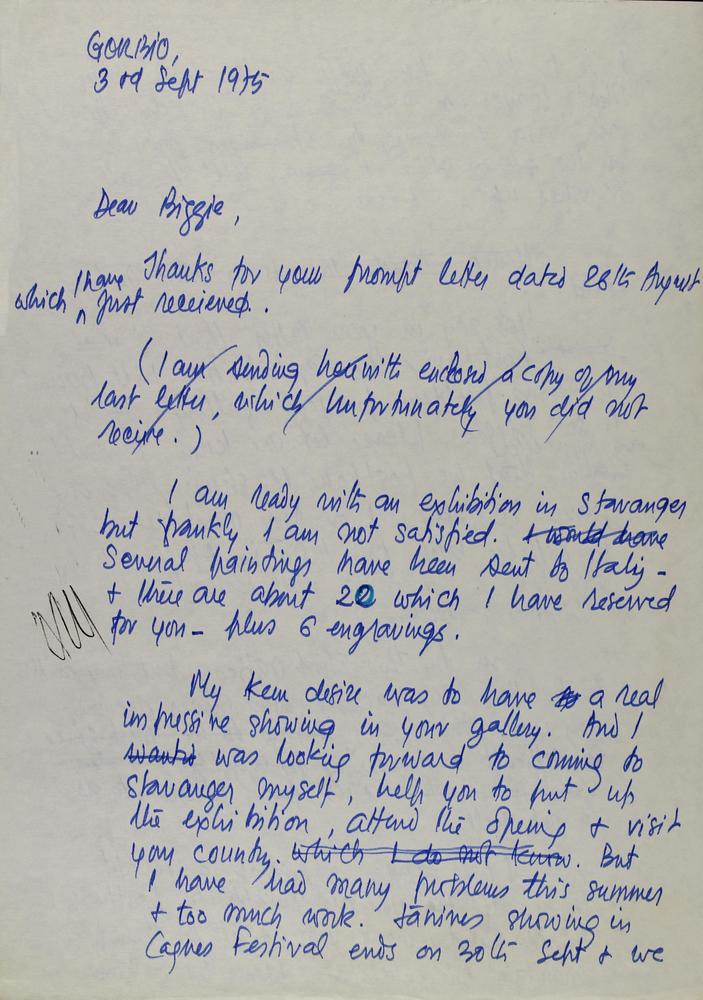 GORBIO,
3rd Sept 1975
Dear Biggie,
Thanks for your prompt letter dated 28th August
which I have just receieved.
(I am sending herewith enclosed a copy of my
last letter, which unfortunately you did not
recive.)
I am ready with an exhibition in Stavanger
but frankly I am not satisfied. I would have
Several paintings have been sent to Italy -
+ there are about 20 which I have reserved
for you - plus 6 engravings.
My keen desire was to have a real
impressive showing in your gallery. And I
wanted was looking forward to coming to
Stavanger myself, help you to put up
the exhibition, attend the opening + visit
your country. which I do not know. But
I have had many problems this summer
+ too much work. Janines showing in
Cagnes Festival ends on 30th Sept + we